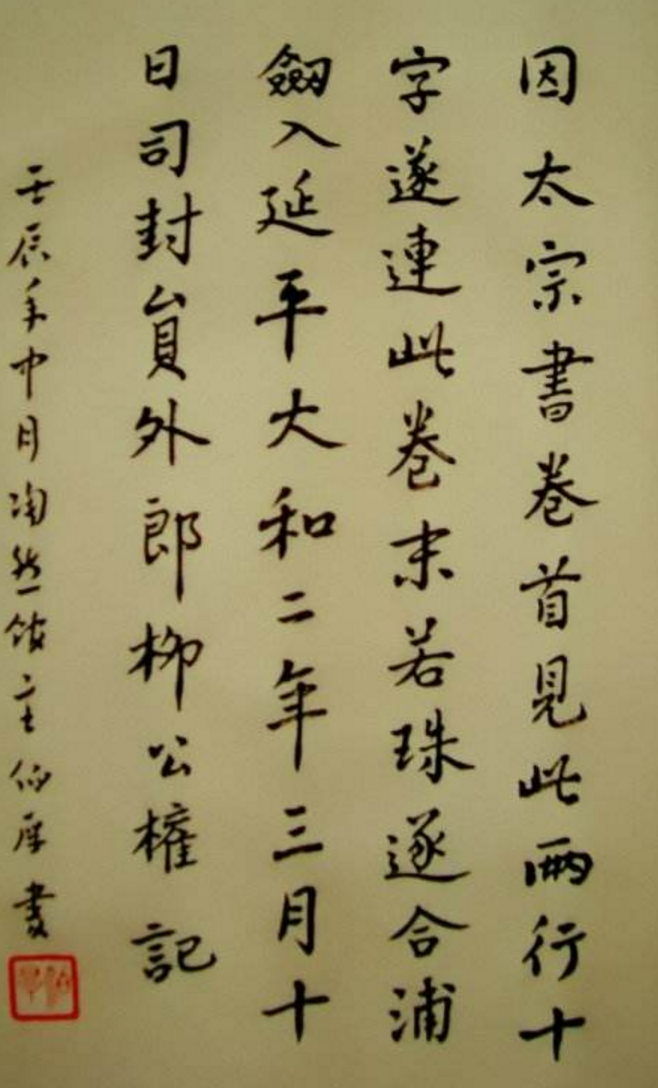 因太宗書卷首見此兩行十
字遂連此卷末若珠遂合浦
劔入延平大和二年三月十
日司封員外郎柳公權記
壬辰年中月陶然館主伯厚書